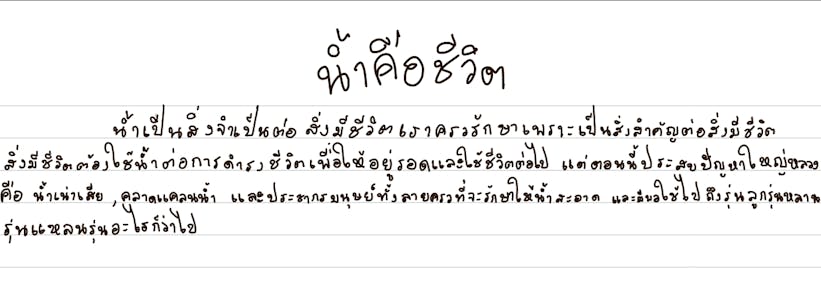 น้ำคือชีวิต
น้ำเป็นสิ่งจำเป็นต่อ สิ่งมีชีวิตเราควรรักษาเพราะเป็นสิ่งสำคัญต่อสิ่งมีชีวิต
สิ่งมีชีวิตต้องใช้น้ำต่อการดำรงชีวิตเพื่อให้อยู่รอดและใช้ชีวิตต่อไป แต่ตอนนี้ประสบปัญหาใหญ่หลวง
คือ น้ำเน่าเสีย , คลาดแคลนน้ำ และประชากรมนุษย์ทั้งลายควรที่จะรักษาให้น้ำสะอาด และมีพอใช้ไป ถึงรุ่นลูกรุ่นหลาน
รุ่นแหลนรุ่นอะไรก็ว่าไป